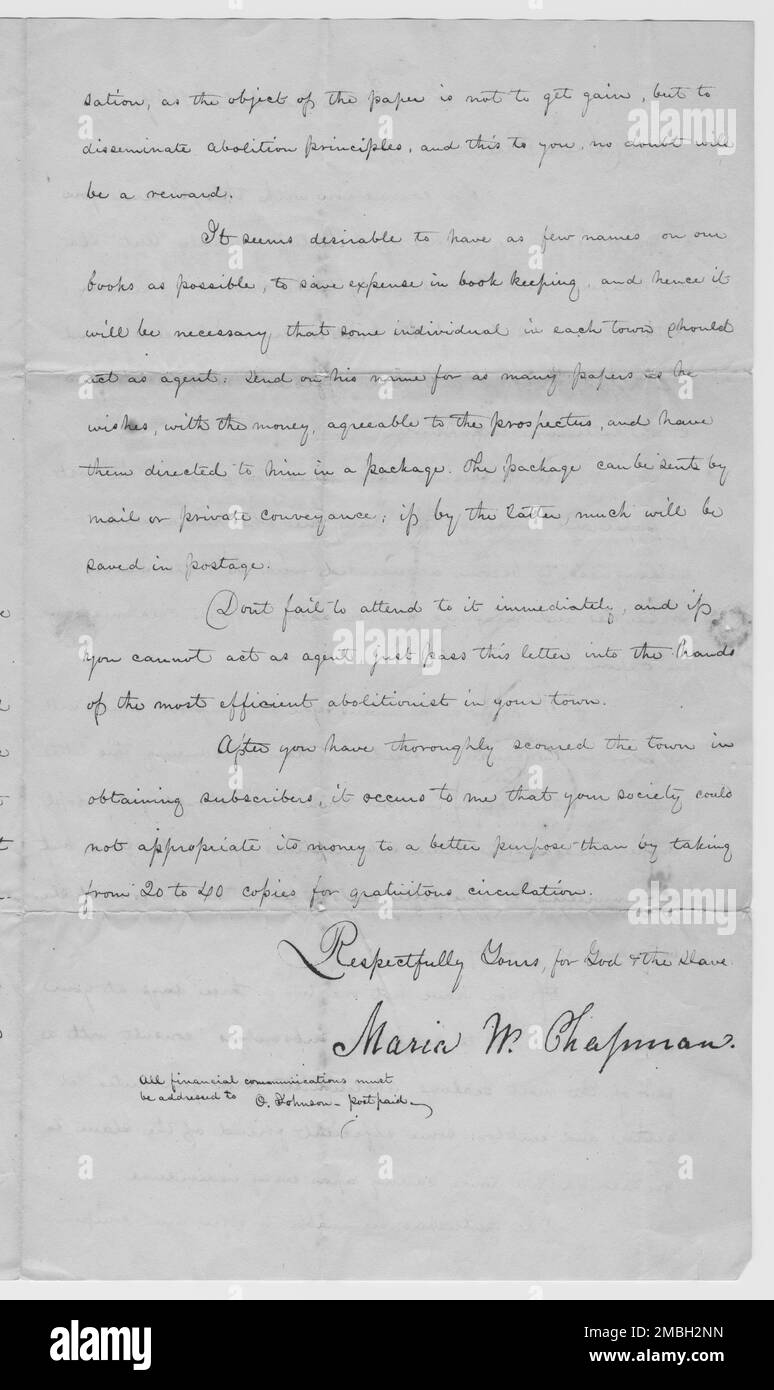 sation, as the object of the paper is not to get gain, but to
disseminate abolition principles, and this to you, no doubt will
be a reward.
It seems desirable to have as few names on our
books as possible, to save expense in book keeping, and hence it
will be necessary that some individual in each town should
act as agent: send on his name for as many papers as he
wishes, with the money, agreeable to the prospectus, and have
them directed to him in a package. The package can be sent by
mail or private conveyance; if by the latter, much will be
saved in postage.
Dont fail to attend to it immediately, and if
you cannot act as agent just pass this letter into the hands
of the most efficient abolitionist in your town.
After you have thoroughly scoured the town in
obtaining subscribers, it occurs to me that your society could
not appropriate its money to a better purpose than by taking
from 20 to 40 copies for gratuitous circulation.
Respectfully Yours, for God & the slave.
Maria W. Chapman.
All financial communications must
be addressed to O. Johnson - post paid -
alamy
Image ID: 2MBH2NN
www.alamy.com